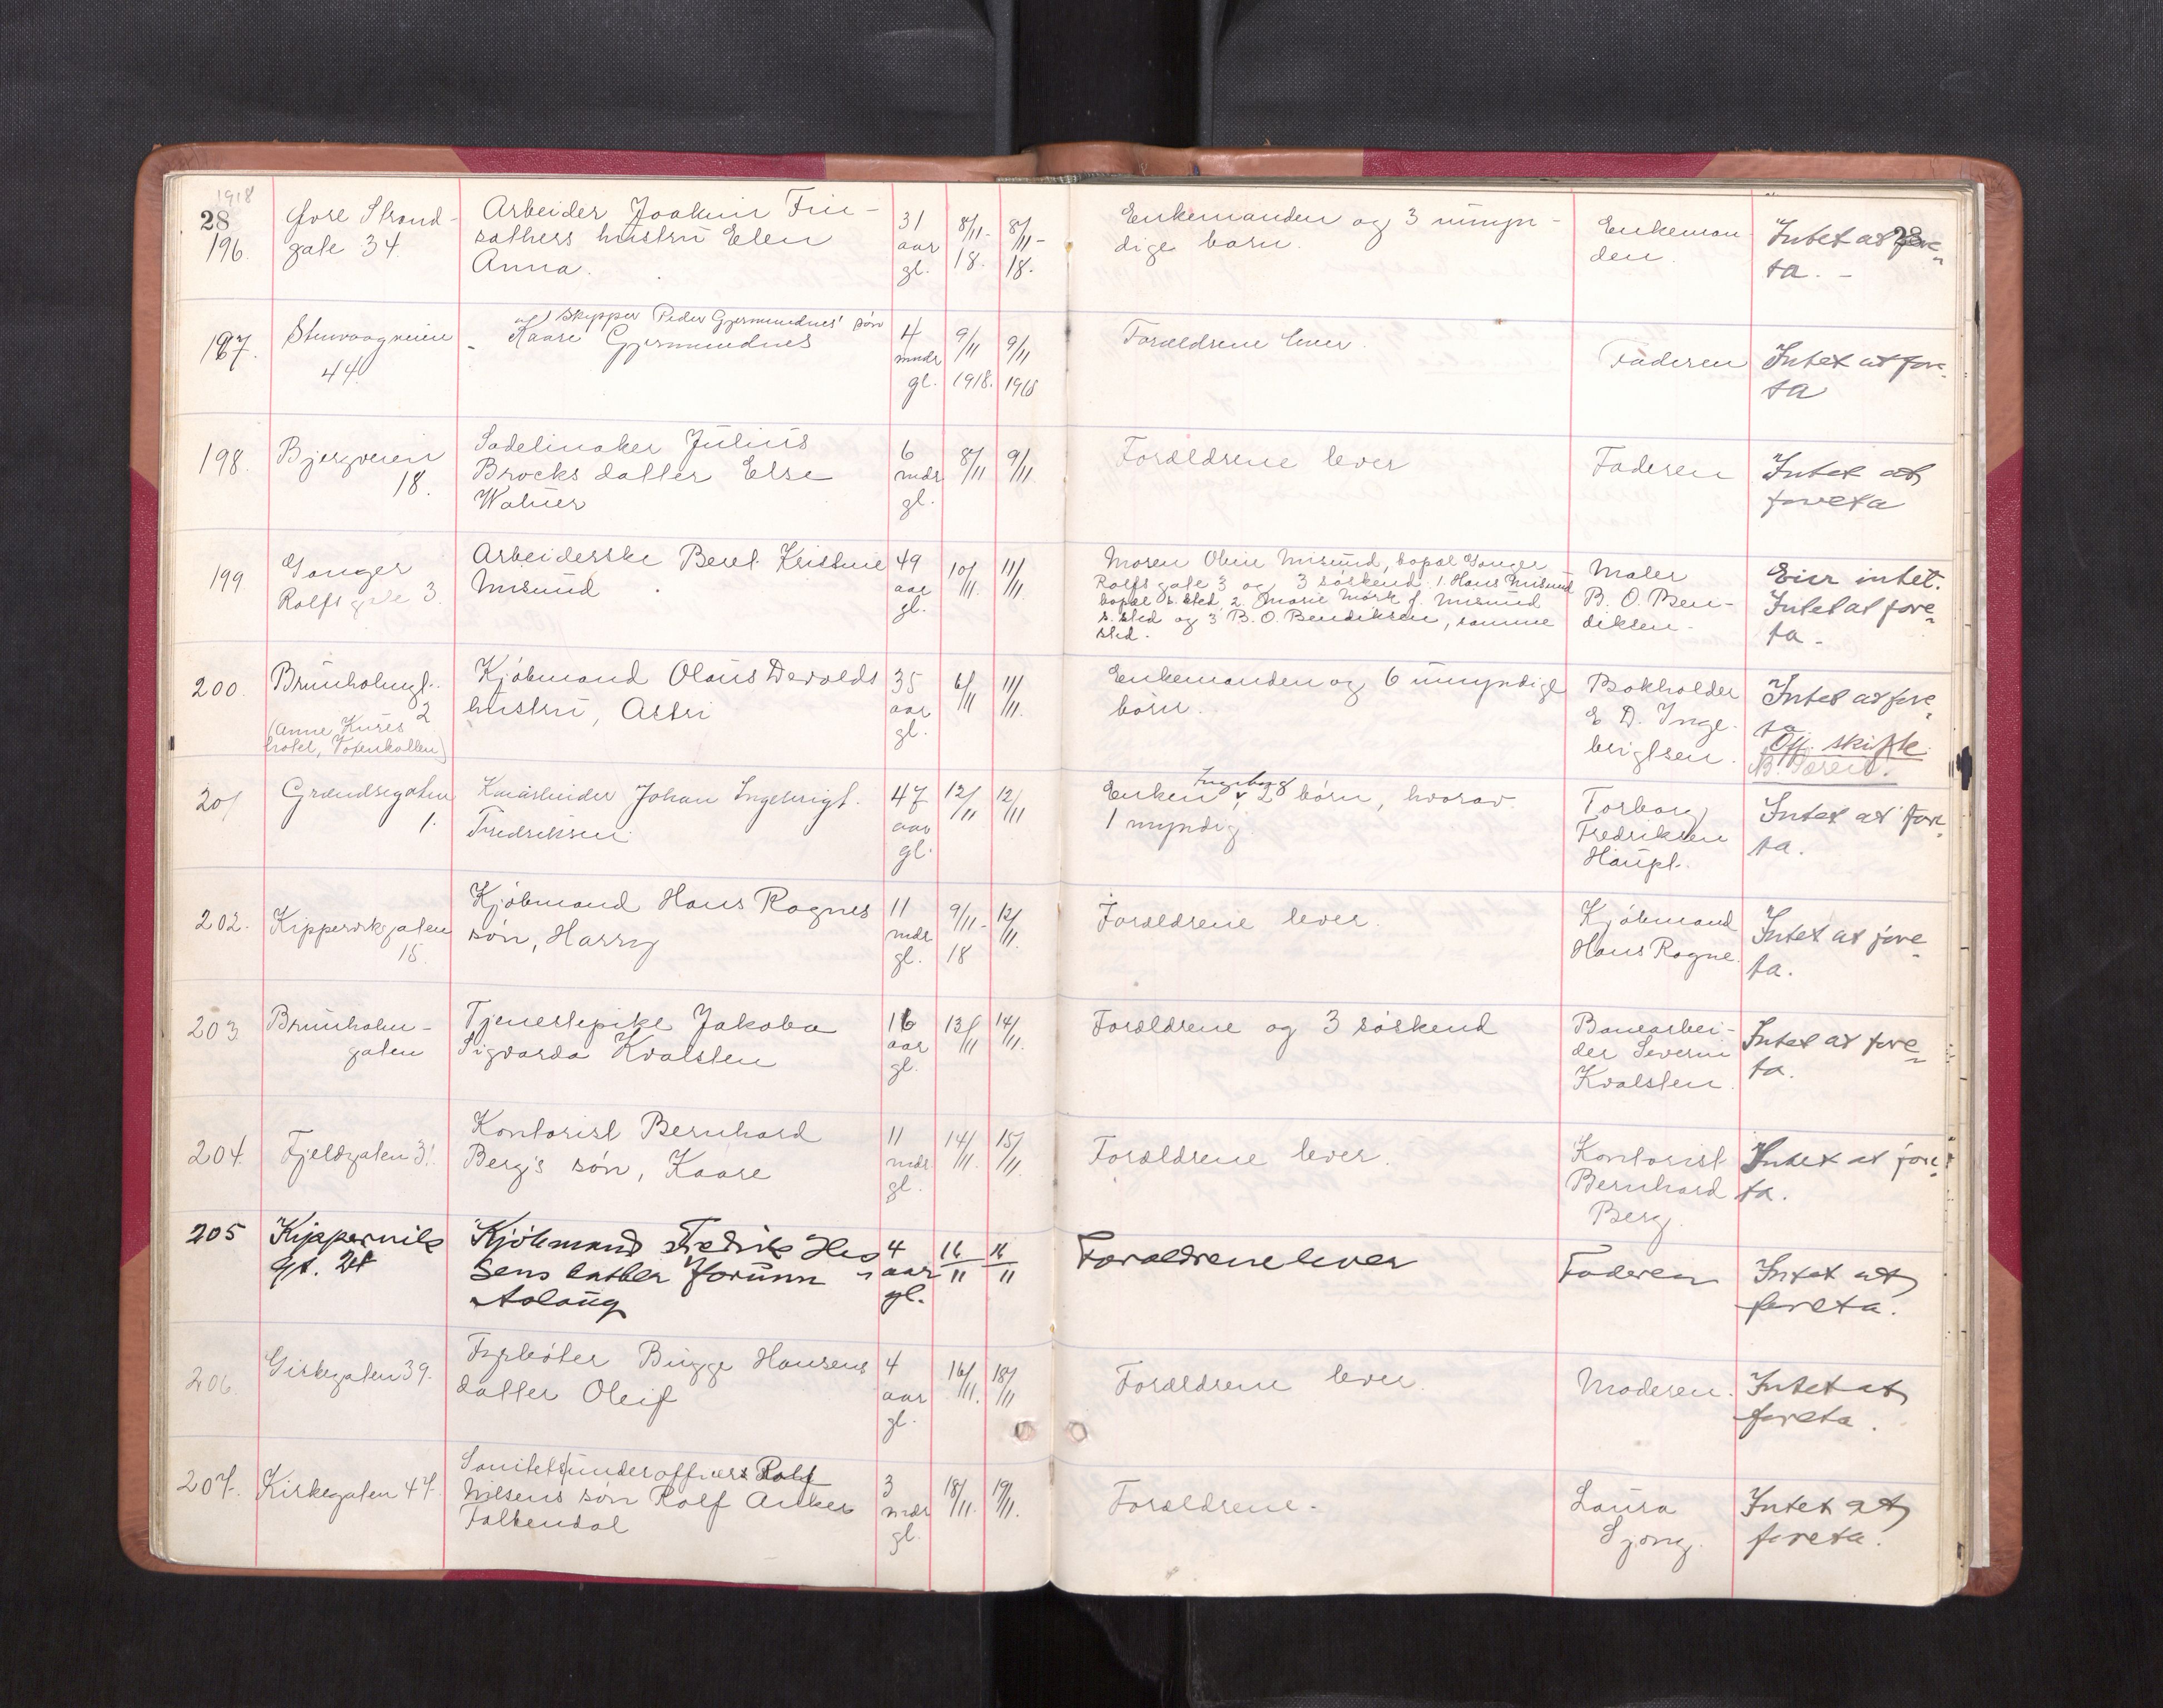 1918
28
28
196. Øvre Strand-
gate 34.
Arbeider Joakim
sathers hustru Elen
Anna.
31
aar
gl.
8/11-
18.
8/11-
18.
Enkemanden og 3 umyn-
dige barn.
Enkeman
den.
Intet at fore-
ta. -
197.
44
Skipper Peder Gjermundnes' søn
Kaare Gjermundnes
4
mndr
gl.
9/11
1918.
9/11
1918
Forældrene lever.
Faderen
Intet at fore-
ta
198. Bjergveien
18.
Sadelmaker Julius
Brocks datter Else
6
mdr
gl.
8/11
9/11
Forældrene lever
Faderen
Intet at
foreta
199 Ganger
Rolfs gate 3.
Arbeiderske Berel. Kristine
Misund
49
aar
gl.
10/11.
11/11.
Moren Oline Misund, bopæl Ganger
Rolfs gate 3 og 3 søskend. 1. Hans Misund
bopæl s. sted, 2. Marie Mørk f. Misund
s. sted og 3 B. O. Bendiksen, samme
sted.
Maler
B. O. Ben-
diksen.
Eier intet.
Intet at fore-
ta -
200. Brunholmgt.
2
(Anne Kures
hotel,
Kjøbmand Olaus Devolds
hustru, Astri
35
aar
gl.
6/11
11/11.
Enkemanden og 6 umyndige
børn.
Bokholder
E. D. Inge-
brigtsen.
Intet at fore-
ta
Off. skifte.
201 Grændsegaten
1.
Johan Ingebrigt.
Fredriksen
47
aar
gl.
12/11
12/11
Ingeborg
Enken, 2 børn, hvorav
1 myndig.
Torborg
Fredriksen
Haupt.
Intet at fore-
ta.
202. Kippervikgaten
15.
Kjøbmand Hans Rognes
søn, Harry
11
mdr
gl.
9/11-
18
12/11.
Forældrene lever.
Kjøbmand
Hans Rogne.
Intet at fore-
ta.
203 Brunholm-
gaten
Tjenestepike Jakoba
Sigvarda Kvalsten
16
aar
gl.
13/11
14/11.
Forældrene og 3 søskend
Banearbei-
der Severin
Kvalsten.
Intet at fore-
ta.
204. Fjeldgaten 31.
Kontorist Bernhard
Berg's søn, Kaare
11
mdr.
gl.
14/11.
15/11.
Forældrene lever.
Kontorist
Bernhard
Berg.
Intet at fore-
ta.
205 Kippervik
gt. 24
Kjøbmand Fredrik
sens datter Jorunn
Aslaug
4
aar
gl.
16/11
16/11
Forældrene lever
Faderen
Intet at
foreta.
206. Girkegaten 39.
Fyrbøter Bugge Hansens
datter Oleif
4
aar
gl.
16/11.
18/11
Forældrene lever.
Moderen.
Intet at
foreta.
207. Kirkegaten 47.
Sanitetsunderofficers Rolf
Nilsens søn Rolf Anker
Falkendal
3
mdr
gl.
18/11.
19/11.
Forældrene.
Laura
Sjong.
Intet at
foreta.